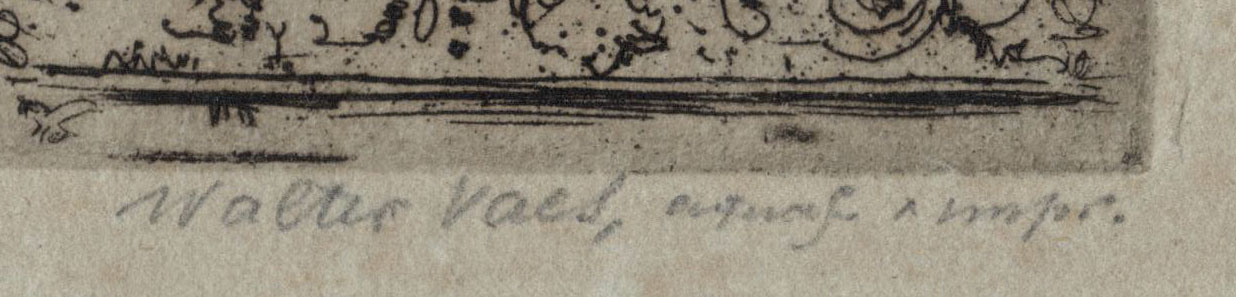 Walter Vaes, aquaf. & impr.